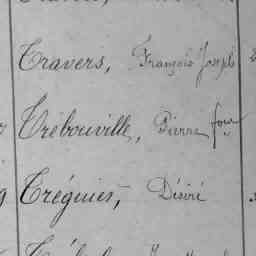 Travers, François Joseph
Trébouville, Pierre
Tréguies, Désiré